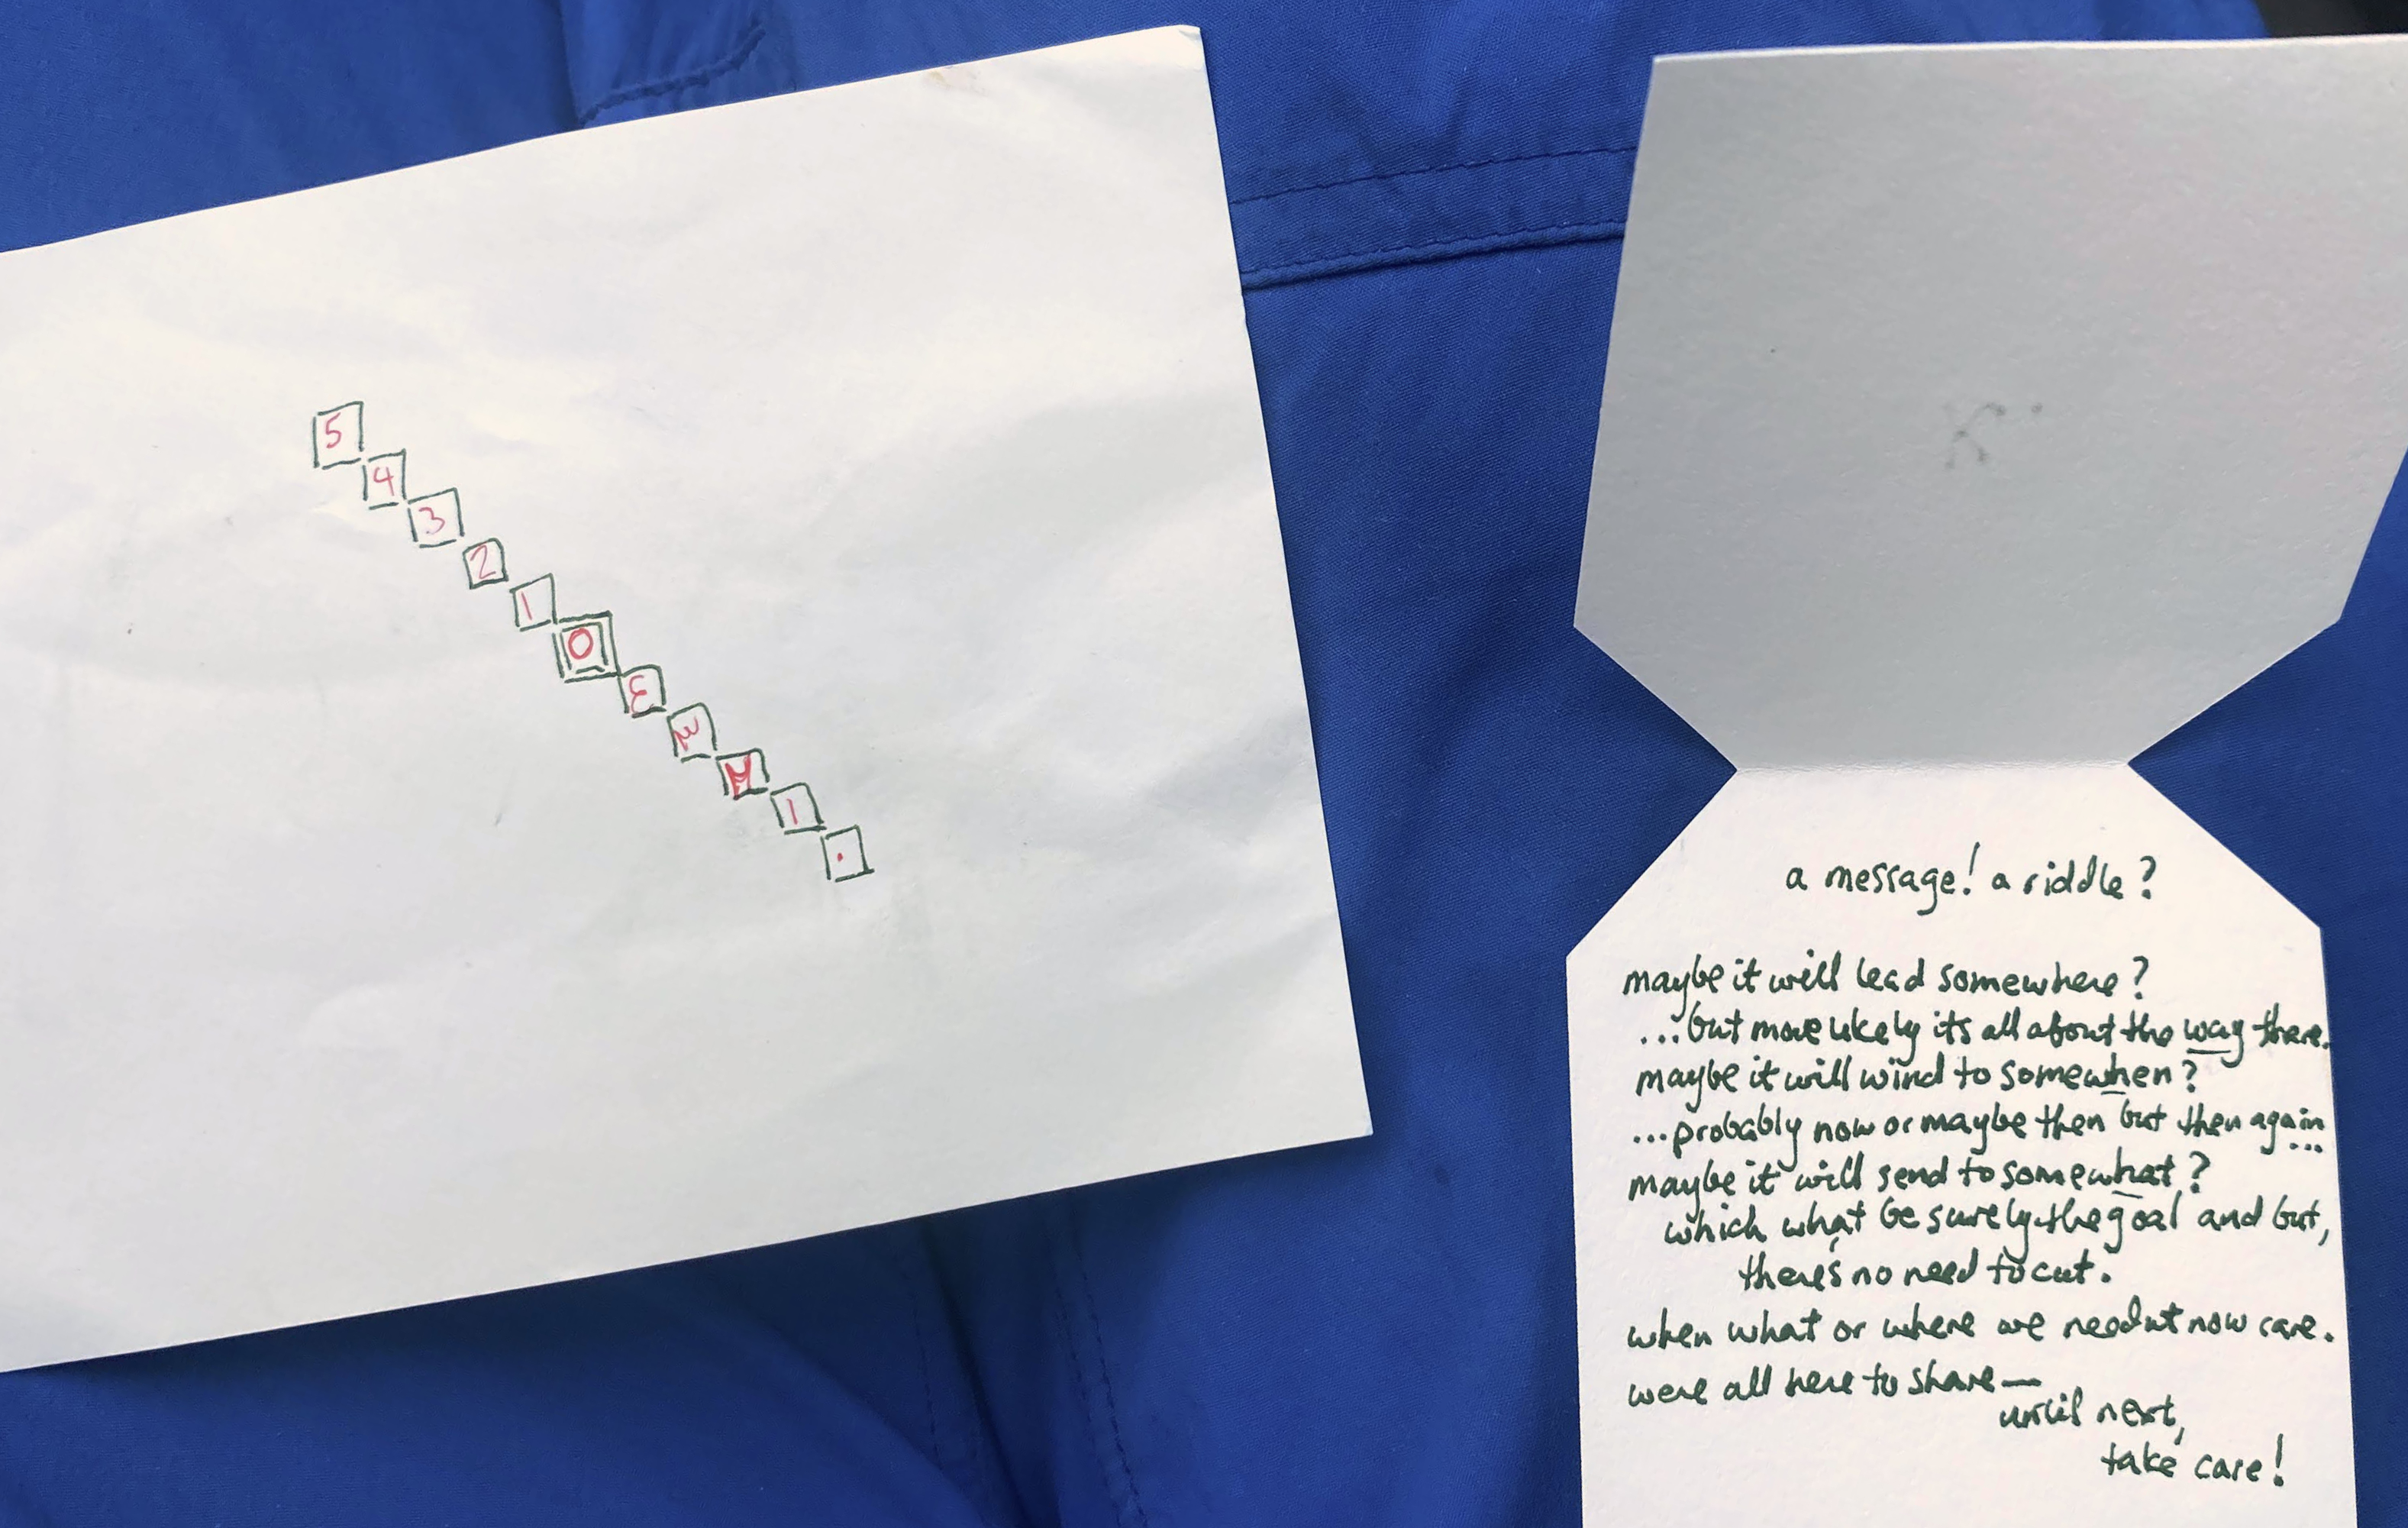 5
4
3
2
1
0
3
1
.
a message! a riddle?
maybe it will lead somewhere?
...but more likely its all about the way there.
maybe it will wind to somewhen?
...probably now or maybe then but then again
...
maybe it will send to somewhat?
which what be surely the goal and but,
there's no need to cut.
when what or where we neednt now care.
were all here to share—
until next,
take care!